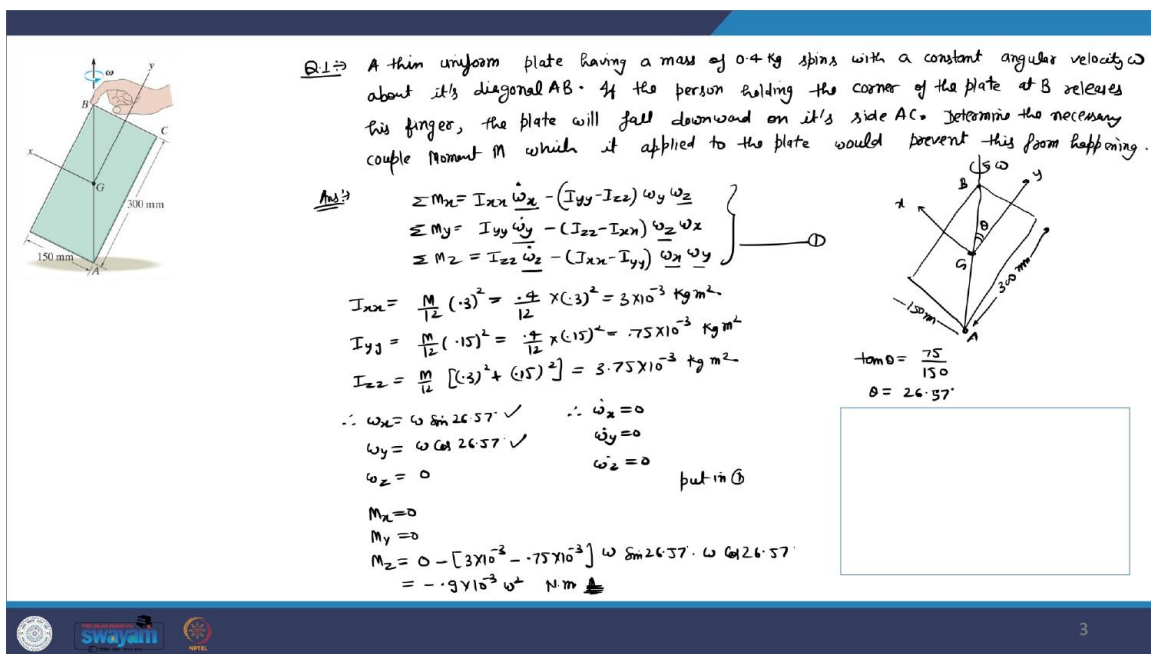 ω
y
B
C
x
G
300 mm
150 mm
A
Q.1⇒ A thin uniform plate having a mass of 0.4 Kg spins with a constant angular velocity ω
about it's diagonal AB. If the person holding the corner of the plate at B releases
his finger, the plate will fall downward on it's side AC. Determine the necessary
couple Moment M which if applied to the plate would prevent this from happening.
Ans:⇒
ΣMx = Ixx ω̇x - (Iyy - Izz) ωy ωz
ΣMy = Iyy ω̇y - (Izz - Ixx) ωz ωx
ΣMz = Izz ω̇z - (Ixx - Iyy) ωx ωy
①
Ixx = M/12 (.3)² = .4/12 x(.3)² = 3x10⁻³ Kg m²
Iyy = M/12 (.15)² = .4/12 x(.15)² = .75x10⁻³ Kg m²
Izz = M/12 [(.3)² + (.15)²] = 3.75x10⁻³ Kg m²
∴ ωx = ω Sin 26.57° ✓ ∴ ω̇x = 0
ωy = ω Cos 26.57° ✓ ω̇y = 0
ωz = 0 ω̇z = 0
put in ①
Mx = 0
My = 0
Mz = 0 - [3x10⁻³ - .75x10⁻³] ω Sin 26.57° . ω Cos 26.57°
= - .9x10⁻³ ω² N.m
ω
B
y
x
θ
G
300 mm
150 m
A
tan θ = 75/150
θ = 26.57°
swayam
NPTEL
3